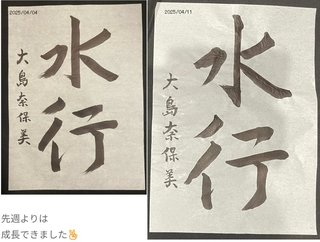 2025/04/04
水行
大島奈保美
2025/04/11
水行
大島奈保美
先週よりは
成長できました✌️